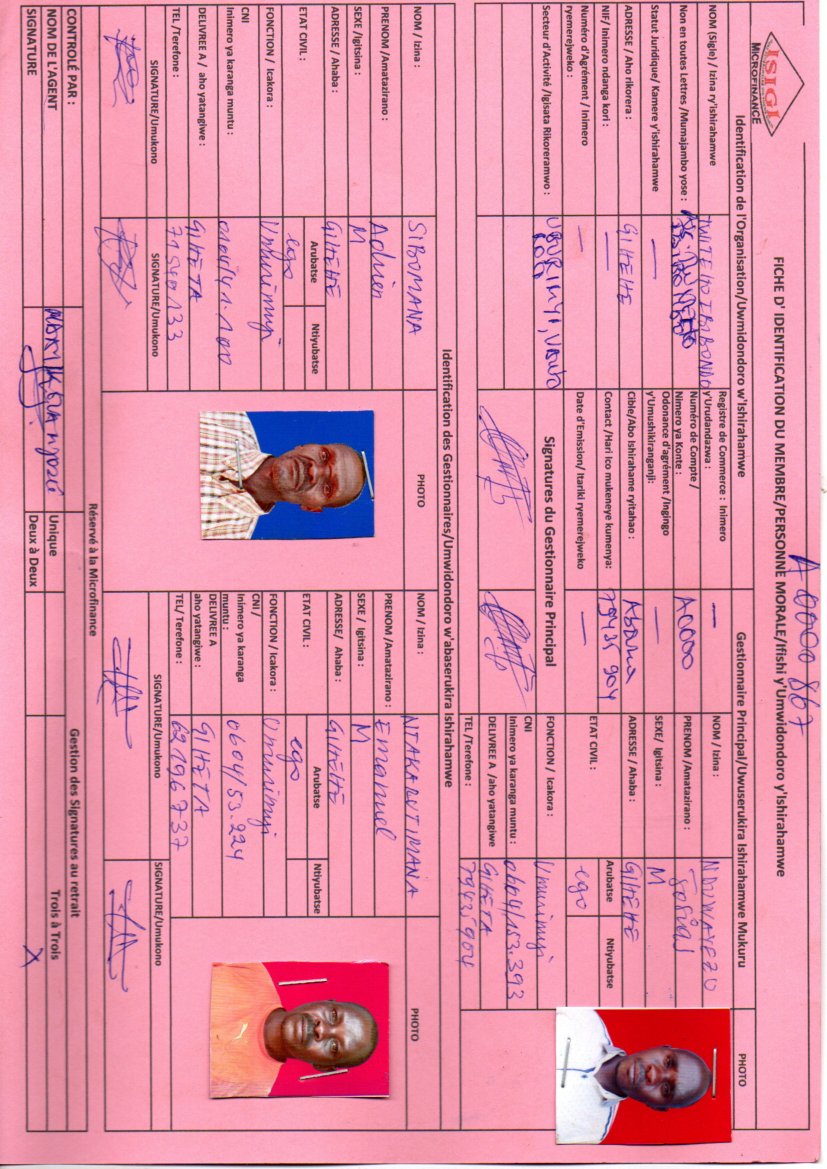 ISIGI
MICROFINANCE
A 0000 867
FICHE D' IDENTIFICATION DU MEMBRE/PERSONNE MORALE/Ifishi y'Umwidondoro y'Ishirahamwe
Identification de l'Organisation/Uwmidondoro w'Ishirahamwe
Gestionnaire Principal/Uwuserukira Ishirahamwe Mukuru
PHOTO
NOM (Sigle) / Izina ry'ishirahamwe
TWITEHO IBIBONDO
Non en toutes Lettres /Mumajambo yose :
Statut Juridique/ Kamere y'ishirahamwe
—
ADRESSE / Aho rikorera :
GIHEHE
NIF/ Inimero ndanga kori :
—
Numéro d'Agrément / Inimero
ryemerejweko :
—
Secteur d'Activité /Igisata Rikoreramwo :
Registre de Commerce : Inimero
y'Urudandazwa :
—
Numéro de Compte /
Nimero ya Konte :
A0000
Odonance d'agrément /Ingingo
y'Umushikiranganji:
—
Cible/Abo Ishirahame ryitahao :
Abana
Contact /Hari ico mukeneye kumenya:
79435 904
Date d'Emission/ Itariki ryemerejweko
—
Signatures du Gestionnaire Principal
NOM / Izina :
NDUWAYEZU
PRENOM /Amatazirano :
Josias
SEXE/ Igitsina :
M
ADRESSE / Ahaba :
GIHEHE
ETAT CIVIL :
Arubatse
Ntiyubatse
ego
FONCTION / Icakora :
Umurimyi
CNI
Inimero ya karanga muntu :
0604/153.393
DELIVREE A /aho yatangiwe
GIHETA
TEL /Terefone :
79435904
Identification des Gestionnaires/Umwidondoro w'abaserukira Ishirahamwe
NOM / Izina :
SIBOMANA
PRENOM /Amatazirano :
Adrien
SEXE /Igitsina :
M
ADRESSE / Ahaba :
GIHEHE
ETAT CIVIL :
Arubatse
Ntiyubatse
ego
FONCTION / Icakora :
Umurimyi
CNI
Inimero ya karanga muntu :
0104/41.100
DELIVREE A / aho yatangiwe :
GIHETA
TEL /Terefone :
71540133
SIGNATURE/Umukono
SIGNATURE/Umukono
PHOTO
NOM / Izina :
NTAKARUTIMANA
PRENOM /Amatazirano :
Emanuel
SEXE / Igitsina :
M
ADRESSE/ Ahaba :
GIHEHE
ETAT CIVIL :
Arubatse
Ntiyubatse
ego
FONCTION / Icakora :
Umurimyi
CNI /
Inimero ya karanga
muntu :
0604/53.224
DELIVREE A
aho yatangiwe :
GIHETA
TEL/ Terefone :
62196737
SIGNATURE/Umukono
SIGNATURE/Umukono
PHOTO
Réservé à la Microfinance
CONTROLÉ PAR :
NOM DE L'AGENT
SIGNATURE
Gestion des Signatures au retrait
Unique
Deux à Deux
Trois à Trois
X